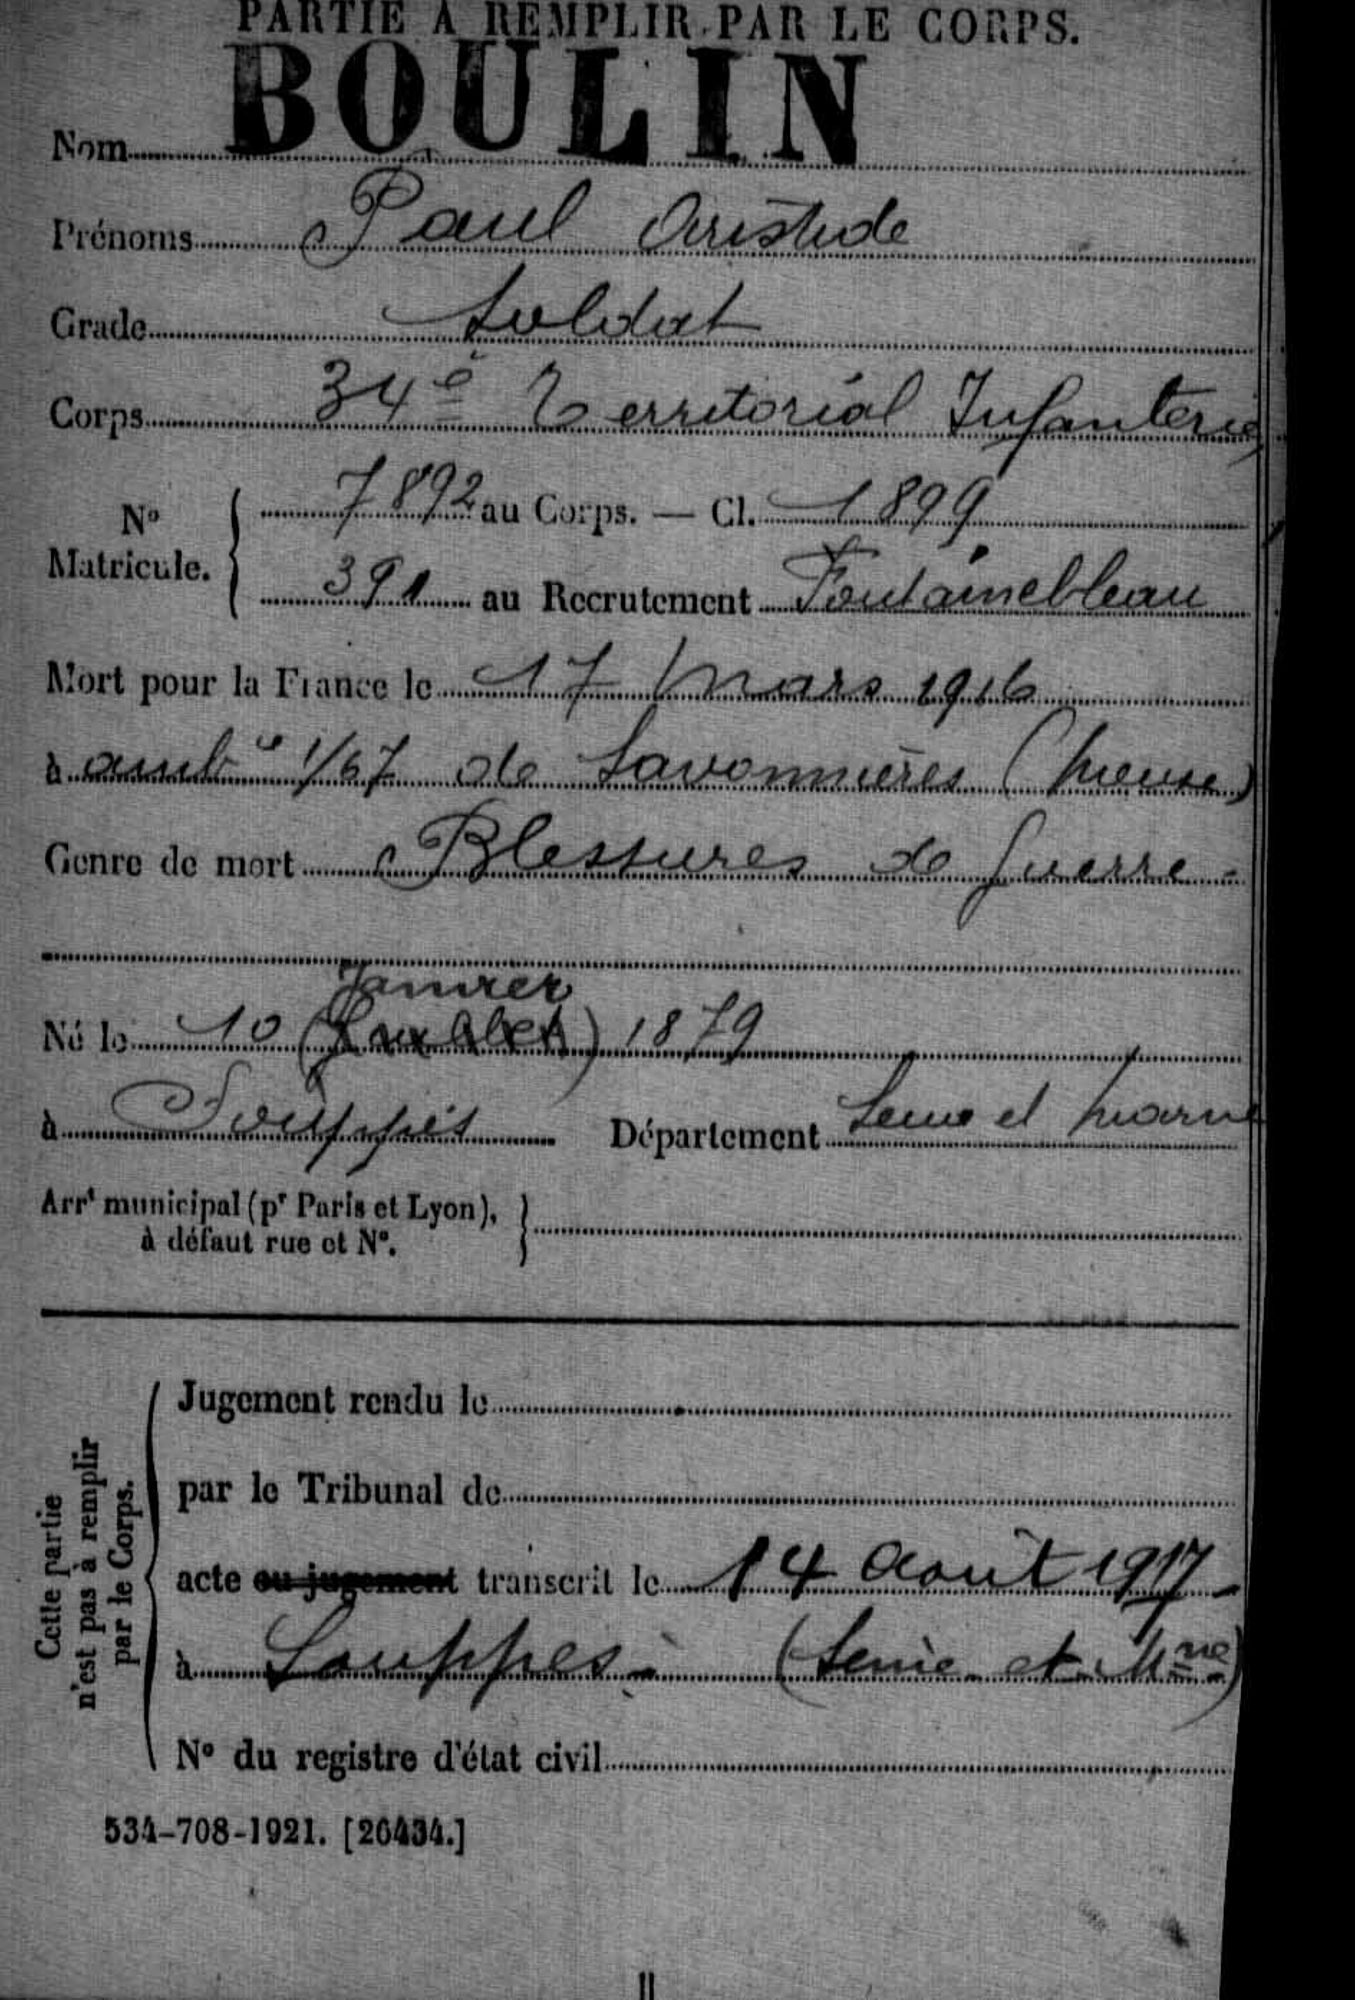 PARTIE A REMPLIR PAR LE CORPS.
Nom BOULIN
Prénoms Paul Aristide
Grade Soldat
Corps 34e Territorial Infanterie
No Matricule. 7892 au Corps. — Cl. 1899
391 au Recrutement Fontainebleau
Mort pour la France le 17 Mars 1916
à ambce 1/67 de Savonnières (Meuse)
Genre de mort Blessures de Guerre -
Janvier
Né le 10 ( ) 1879
à Souppes Département Seine et Marne
Arrt municipal (pr Paris et Lyon),
à défaut rue et No.
Cette partie
n'est pas à remplir
par le Corps.
Jugement rendu le
par le Tribunal de
acte ou jugement transcrit le 14 Août 1917 -
à Souppes - (Seine et Mne)
No du registre d'état civil
534-708-1921. [26434.]